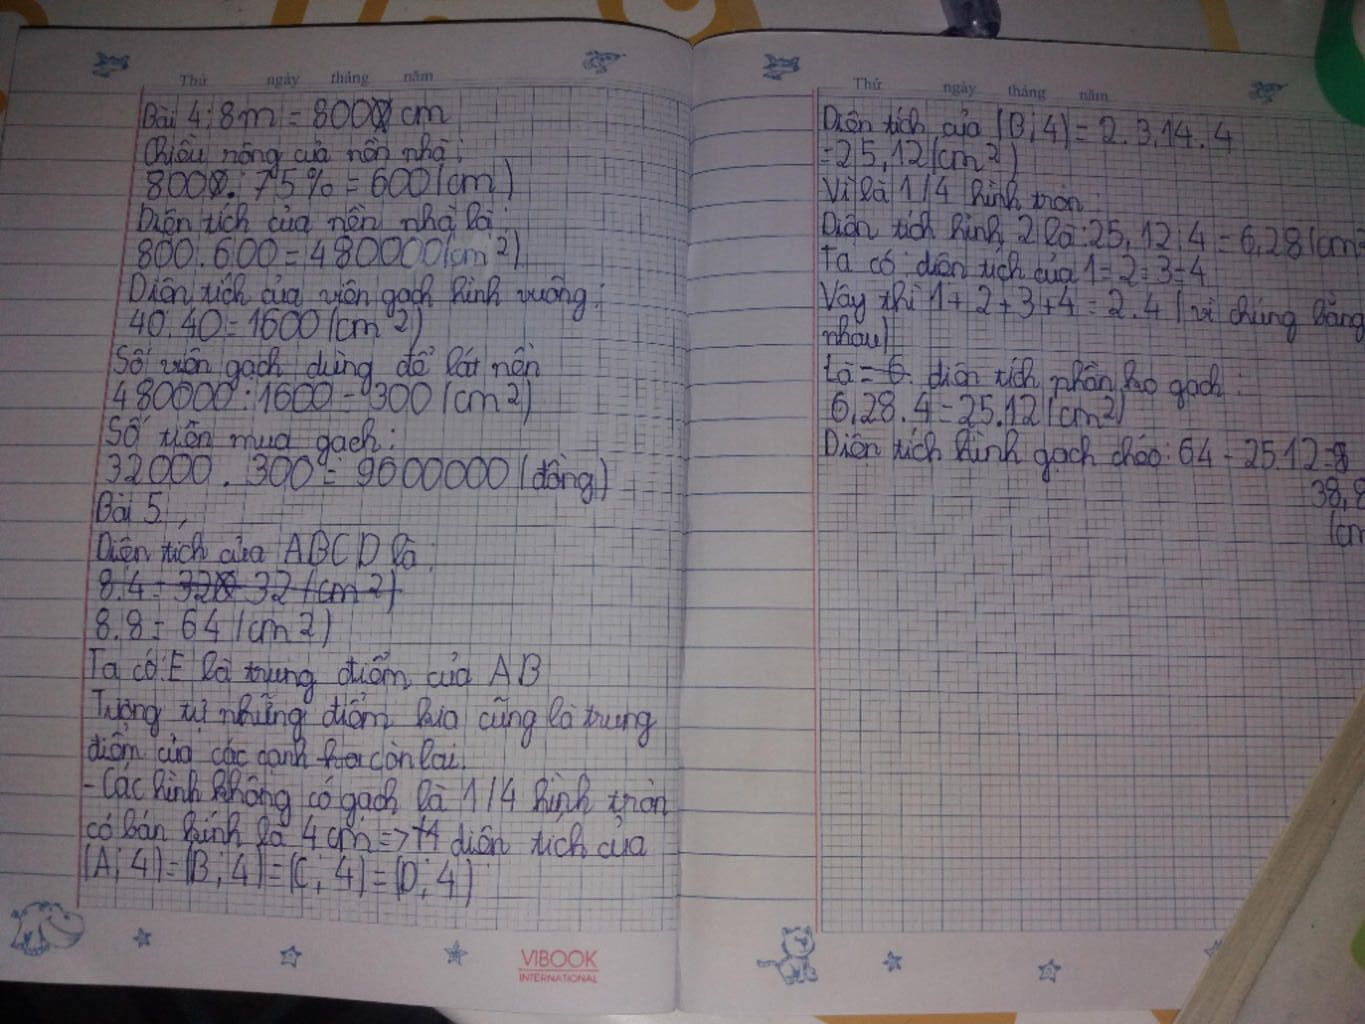 Thứ ngày tháng năm
Bài 4: 8m = 800 cm
Chiều rộng của nền nhà:
800 . 75% = 600 (cm)
Diện tích của nền nhà là:
800.600 = 480000 (cm 2)
Diện tích của viên gạch hình vuông:
40.40 = 1600 (cm 2)
Số viên gạch dùng để lát nền
480000:1600 = 300 (cm2)
Số tiền mua gạch:
32000 . 300 = 9600000 (đồng)
Bài 5
Diện tích của ABCD là:
8.4 = 32 (cm 2)
8.8 = 64 (cm 2)
Ta có: E là trung điểm của AB
Tương tự những điểm kia cũng là trung
điểm của các cạnh còn lại.
- Các hình không có gạch là 1/4 hình tròn
có bán kính là 4 cm => diện tích của
(A; 4) = (B; 4) = (C; 4) = (D; 4)
VIBOOK
INTERNATIONAL
Thứ ngày tháng năm
Diện tích của (B; 4) = 2.3,14.4
= 25,12 (cm 2)
Vì là 1/4 hình tròn:
Diện tích hình 2 là: 25,12:4 = 6,28 (cm
Ta có: diện tích của 1=2=3=4
Vậy thì 1+2+3+4 = 2.4 (vì chúng bằng
nhau)
Là = 6 diện tích phần ko gạch:
6,28.4 = 25.12 (cm2)
Diện tích hình gạch chéo: 64 - 25.12 =
38,8
(cm